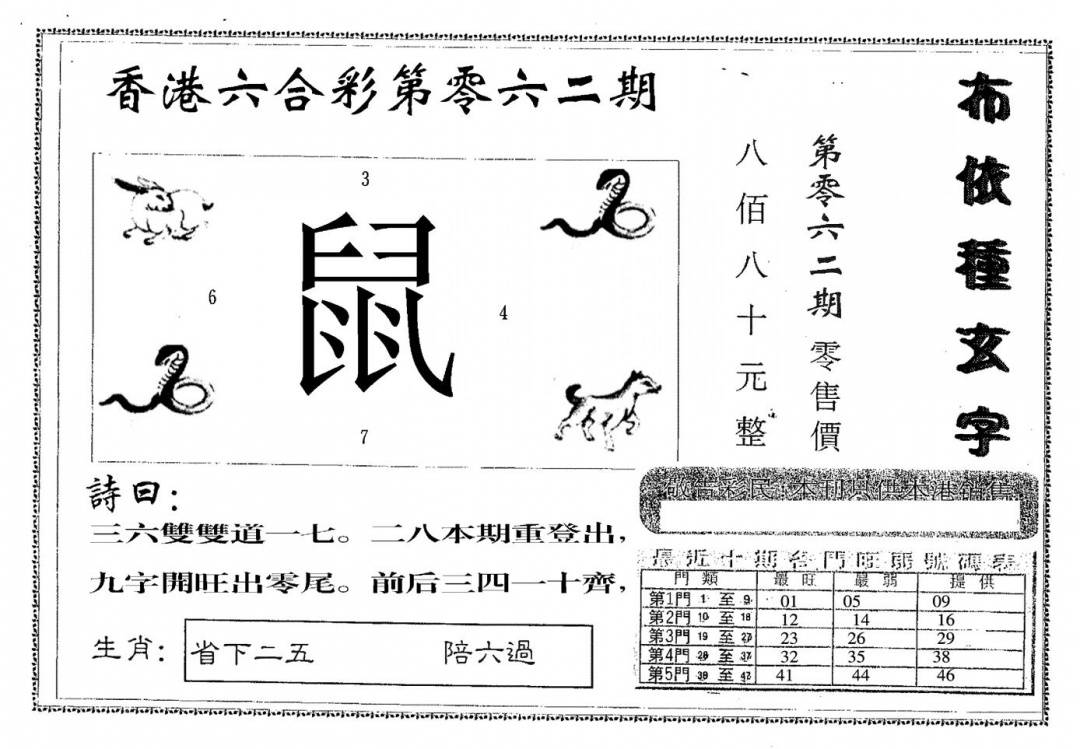 香港六合彩第零六二期
布依種玄字
第零六二期零售價
八佰八十元整
3
鼠
6
4
7
詩曰:
三六雙雙道一七。二八本期重登出,
九字開旺出零尾。前后三四一十齊,
生肖: 省下二五 陪六過
敬告彩民:本刊只供本港銷售
最近十期各門旺弱號碼表
門類 最旺 最弱 提供
第1門 1 至 9 01 05 09
第2門 10 至 18 12 14 16
第3門 19 至 27 23 26 29
第4門 28 至 37 32 35 38
第5門 38 至 47 41 44 46